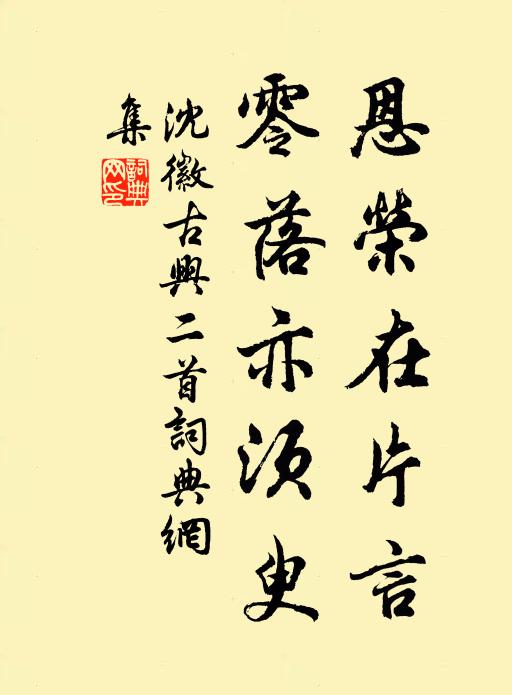 恩榮在片言
零落亦須臾
沈徽古興二首詞典網
集
詞典
網印